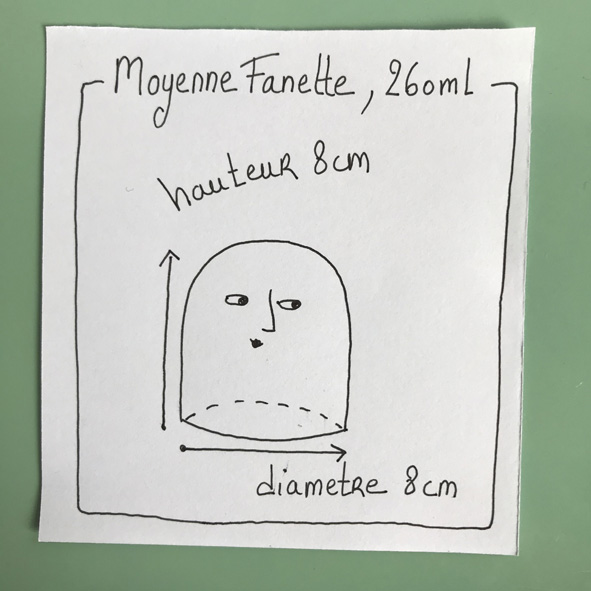 Moyenne Fanette, 260ml
hauteur 8cm
diametre 8cm